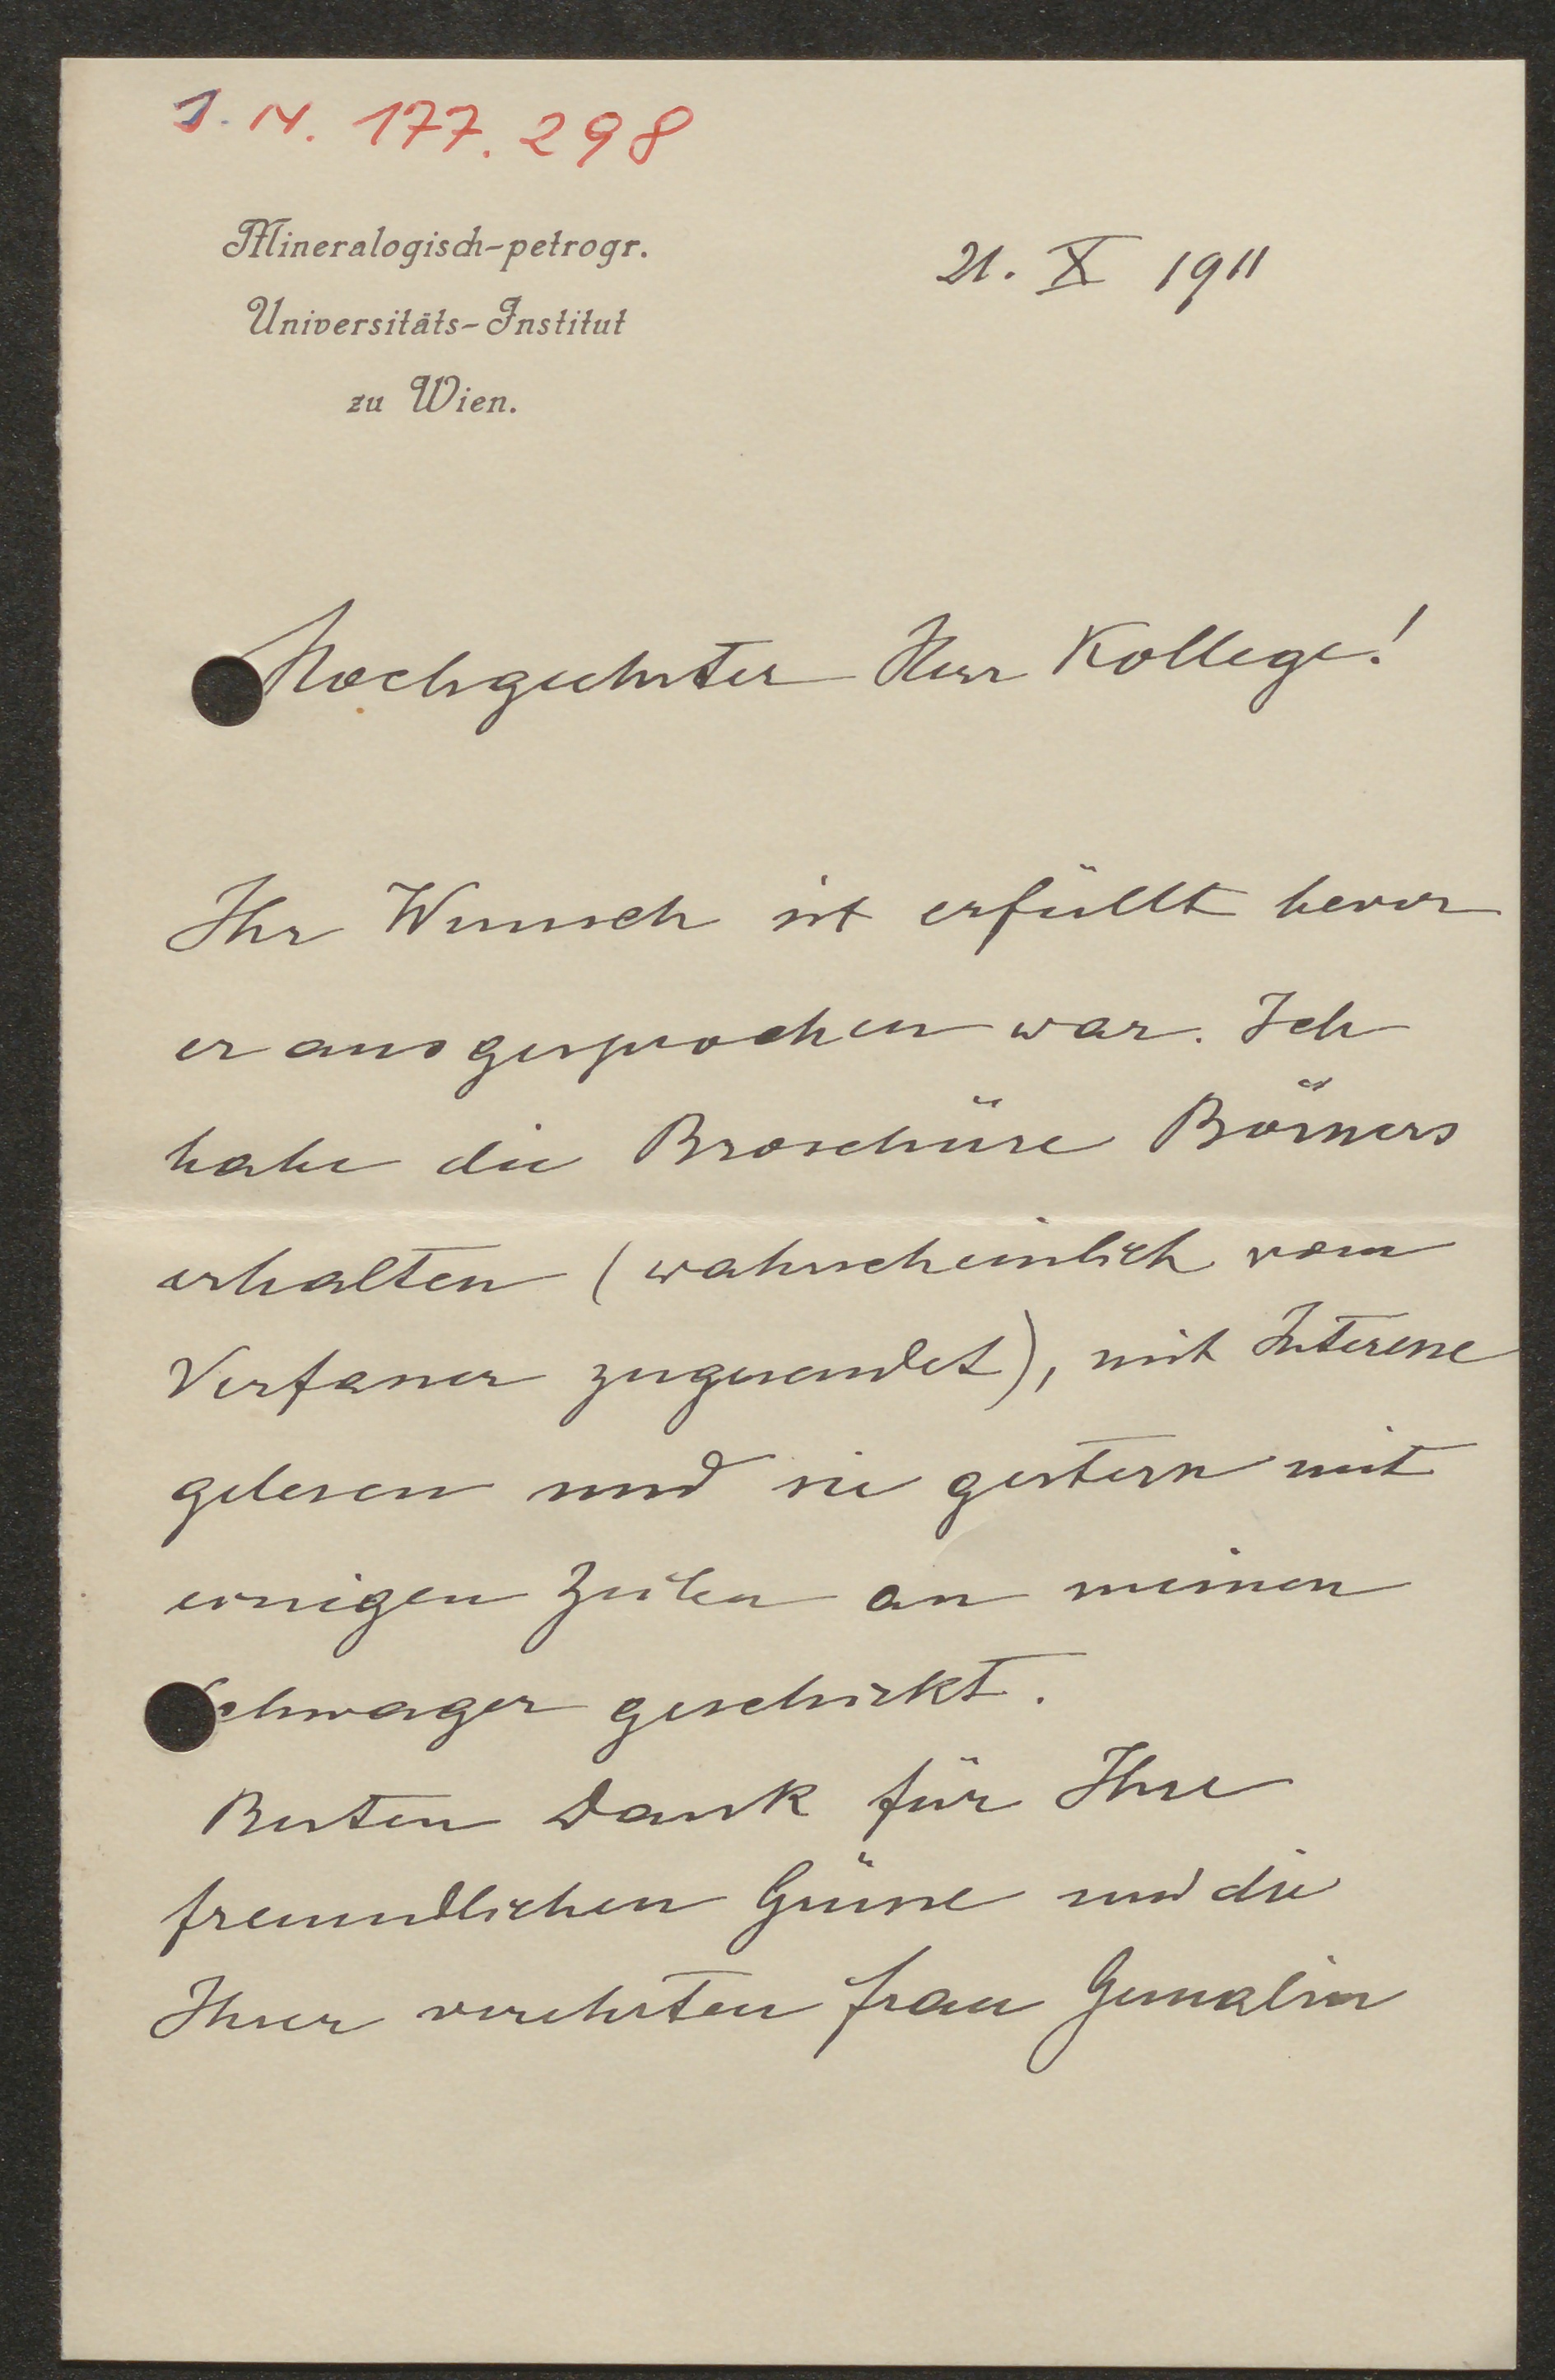 I. N. 177.298
Mineralogisch-petrogr.
Universitäts-Institut
zu Wien.
21. X 1911
Hochgeehrter Herr Kollege!
Ihr Wunsch ist erfüllt bevor
er ausgesprochen war. Ich
habe die Broschüre Börners
erhalten (wahrscheinlich vom
Verfasser zugesendet), mit Interesse
gelesen und sie gestern mit
einigen Zeilen an meinen
Schwager geschickt.
Besten Dank für Ihre
freundlichen Grüsse und die
Ihrer verehrten Frau Gemalin